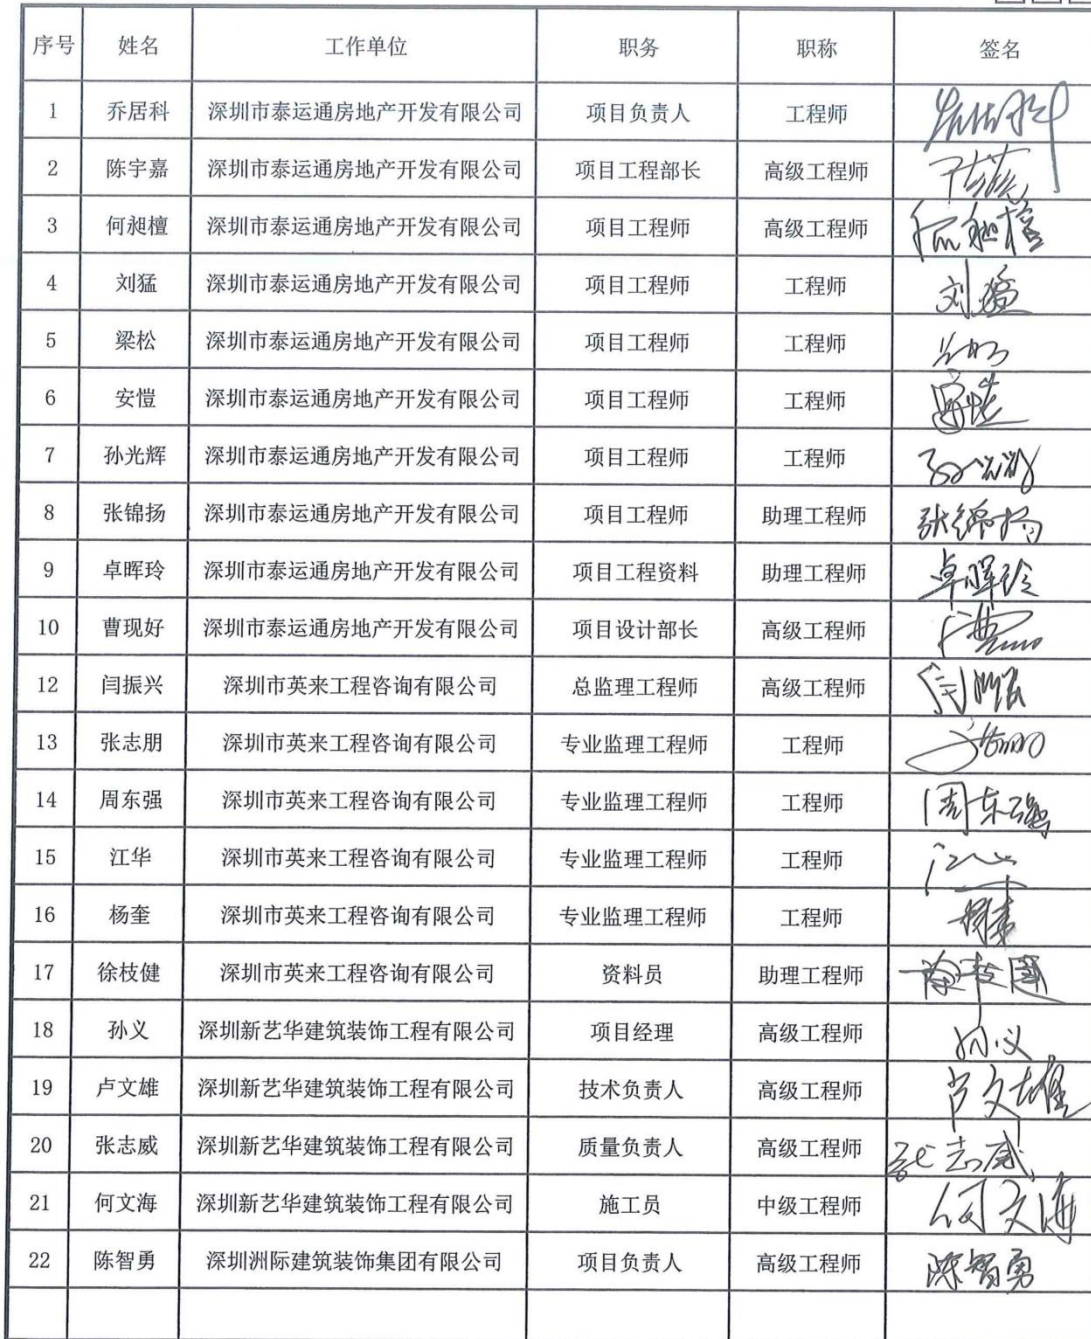 序号 姓名 工作单位 职务 职称 签名
1 乔居科 深圳市泰运通房地产开发有限公司 项目负责人 工程师
2 陈宇嘉 深圳市泰运通房地产开发有限公司 项目工程部长 高级工程师
3 何昶檀 深圳市泰运通房地产开发有限公司 项目工程师 高级工程师 何昶檀
4 刘猛 深圳市泰运通房地产开发有限公司 项目工程师 工程师 刘猛
5 梁松 深圳市泰运通房地产开发有限公司 项目工程师 工程师
6 安愷 深圳市泰运通房地产开发有限公司 项目工程师 工程师 安愷
7 孙光辉 深圳市泰运通房地产开发有限公司 项目工程师 工程师 孙光辉
8 张锦扬 深圳市泰运通房地产开发有限公司 项目工程师 助理工程师 张锦扬
9 卓晖玲 深圳市泰运通房地产开发有限公司 项目工程资料 助理工程师 卓晖玲
10 曹现好 深圳市泰运通房地产开发有限公司 项目设计部长 高级工程师
12 闫振兴 深圳市英来工程咨询有限公司 总监理工程师 高级工程师
13 张志朋 深圳市英来工程咨询有限公司 专业监理工程师 工程师
14 周东强 深圳市英来工程咨询有限公司 专业监理工程师 工程师 周东强
15 江华 深圳市英来工程咨询有限公司 专业监理工程师 工程师 江华
16 杨奎 深圳市英来工程咨询有限公司 专业监理工程师 工程师
17 徐枝健 深圳市英来工程咨询有限公司 资料员 助理工程师
18 孙义 深圳新艺华建筑装饰工程有限公司 项目经理 高级工程师 孙义
19 卢文雄 深圳新艺华建筑装饰工程有限公司 技术负责人 高级工程师 卢文雄
20 张志威 深圳新艺华建筑装饰工程有限公司 质量负责人 高级工程师 张志威
21 何文海 深圳新艺华建筑装饰工程有限公司 施工员 中级工程师 何文海
22 陈智勇 深圳洲际建筑装饰集团有限公司 项目负责人 高级工程师 陈智勇